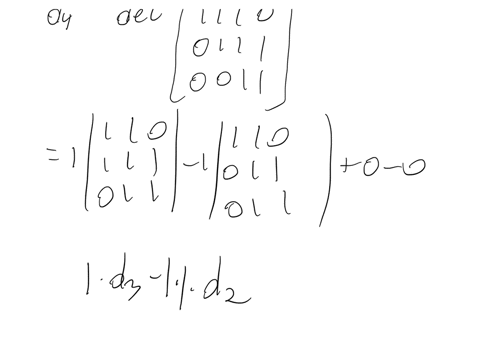 dy det | 1 1 1 0
0 1 1 1
0 0 1 1 |
= 1 | 1 1 0 | - 1 | 1 1 0 | + 0 - 0
1 1 1 0 1 1
0 1 1 0 1 1
1 · d3 - 1 · 1 · d2